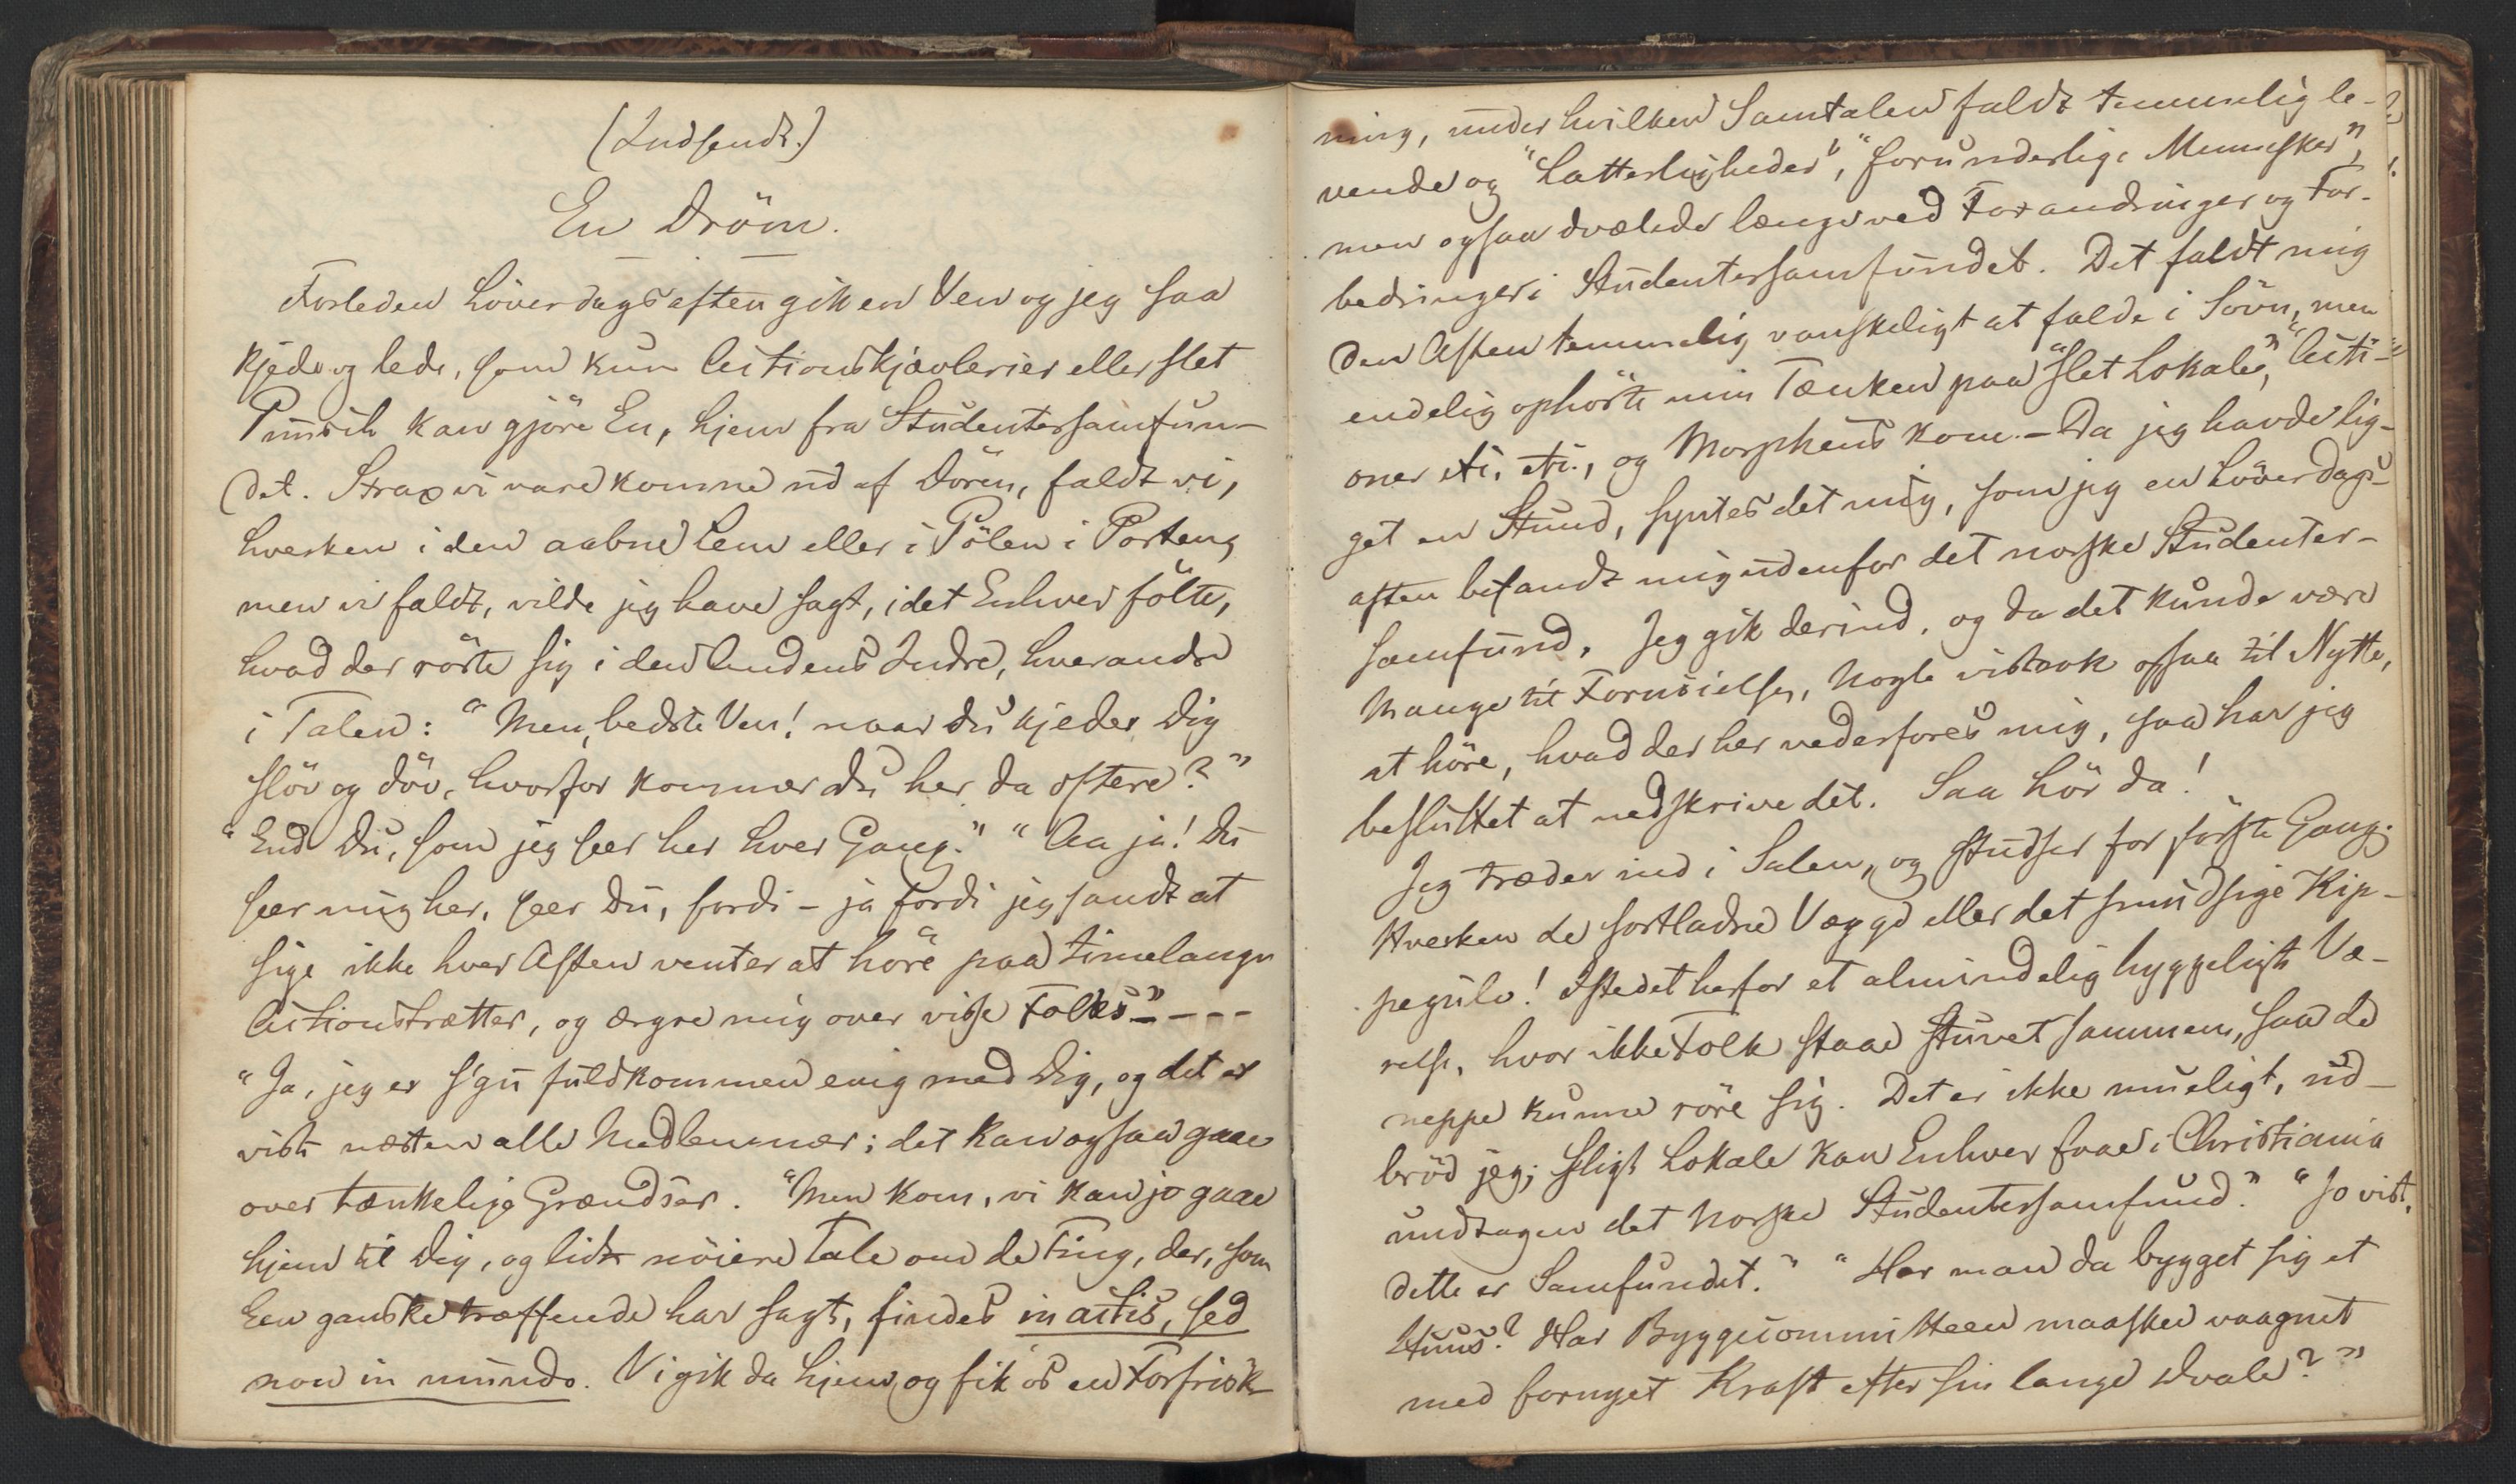 (Indsendt.)
En Dröm.
Forleden Löverdagsaften gik en Ven og jeg saa
kjede og lede, som kun Actionskjævlerier eller slet
Punsch kan gjöre En, hjem fra Studentersamfun-
det. Strax vi vare komne ud af Dören, faldt vi,
hverken i den aabne Lem eller i Pölen i Porten,
men vi faldt, vilde jeg have sagt, idet Enhver fölte,
hvad der rörte sig i den Andens Indre, hverandre
i Talen: "Men, bedste Ven! naar Du kjeder Dig
slöv og döv, hvorfor kommer Du her da oftere?"
"End Du, som jeg seer her hver Gang." "Aa ja! Du
seer mig her, seer Du, fordi – ja fordi jeg sandt at
sige ikke hver Aften venter at höre paa timelange
Actionstrætter, og ærgre mig over visse Folks" – – –
"Ja, jeg er s'gu fuldkommen enig med Dig, og det er
vist næsten alle Medlemmer; det kan ogsaa gaae
over tænkelige Grændser. "Men kom, vi kan jo gaae
hjem til Dig, og lidt nöiere Tale om de Ting, der, som
Een ganske træffende har sagt, findes in actis, sed
non in mundo. Vi gik da hjem, og fik os en Forfrisk-
ning, under hvilken Samtalen faldt temmelig le-
vende og "Latterligheder", "forunderlige Mennesker",
men ogsaa dvælede længe ved Forandringer og For-
bedringer i Studentersamfundet. Det faldt mig
den Aften temmelig vanskeligt at falde i Sövn, men
endelig ophörte min Tænken paa "slet Lokale", "Acti-
oner etc. etc., og Morpheus kom. – Da jeg havde lig-
get en Stund, syntes det mig, som jeg en Löverdags-
aften befandt mig udenfor det norske Studenter-
samfund. Jeg gik derind, og da det kunde være
Mange til Fornöielse, Nogle vistnok ogsaa til Nytte,
at höre, hvad der her vederfores mig, saa har jeg
besluttet at nedskrive det. Saa hör da!
Jeg træder ind i Salen, og studser for förste Gang;
Hverken de sortladne Vægge eller det smudsige Rip-
pegulv! Istedetherfor et almindelig hyggeligt Væ-
relse, hvor ikke Folk staae stuvet sammen, saa de
neppe kunne röre sig. Det er ikke mueligt, ud-
bröd jeg; sligt Lokale kan Enhver faae i Christiania
undtagen det norske Studentersamfund." "Jo vist,
dette er Samfundet." "Har man da bygget sig et
Huus? Har Byggecommitteen maaskee vaagnet
med fornyet Kraft efter sin lange Dvale?"